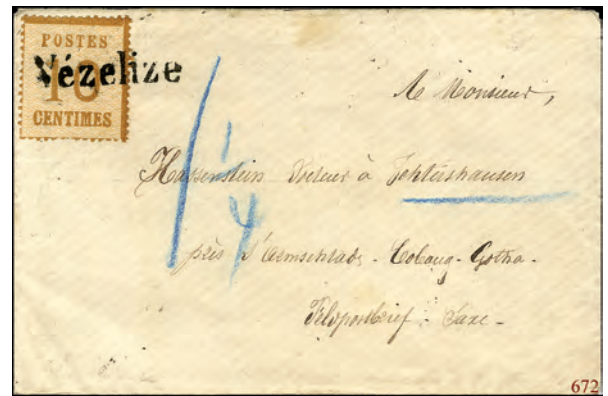 POSTES
10
CENTIMES
Vézelize
A Monsieur,
Hassenstein Docteur à
près d'Arnschtadt - Cobourg-Gotha -
Feldpostbrief - Saxe -
1/4
672